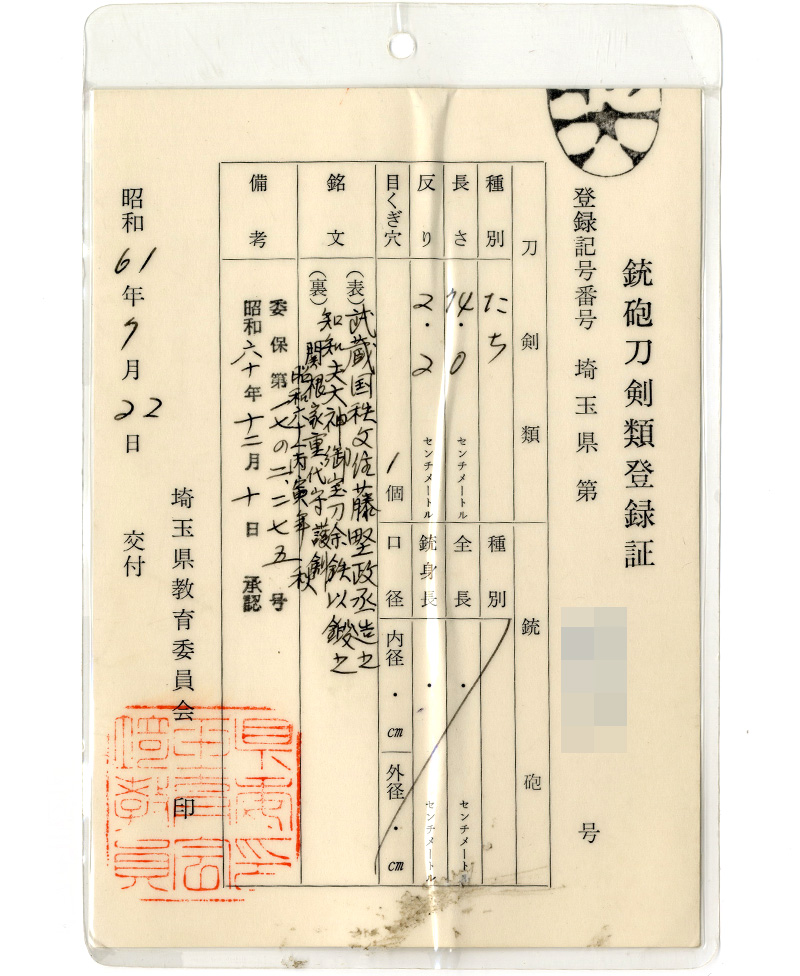 銃砲刀剣類登録証
登録記号番号 埼玉県 第 号
刀剣類 銃砲
種別 たち 種別
長さ 74.0 センチメートル 全長 . センチメートル
反り 2.2 センチメートル 銃身長 . センチメートル
目くぎ穴 1個 口径 内径 . cm 外径 . cm
銘文
(表) 武蔵国秩父住藤堅政丞造之
知知夫大神御宝刀余鉄以鍛之
(裏) 関根家重代守護剣
昭和六十一丙寅年秋
備考
委保第一七の二、二七五号
昭和六十年十二月十日 承認
昭和61年7月22日 交付
埼玉県教育委員会 印